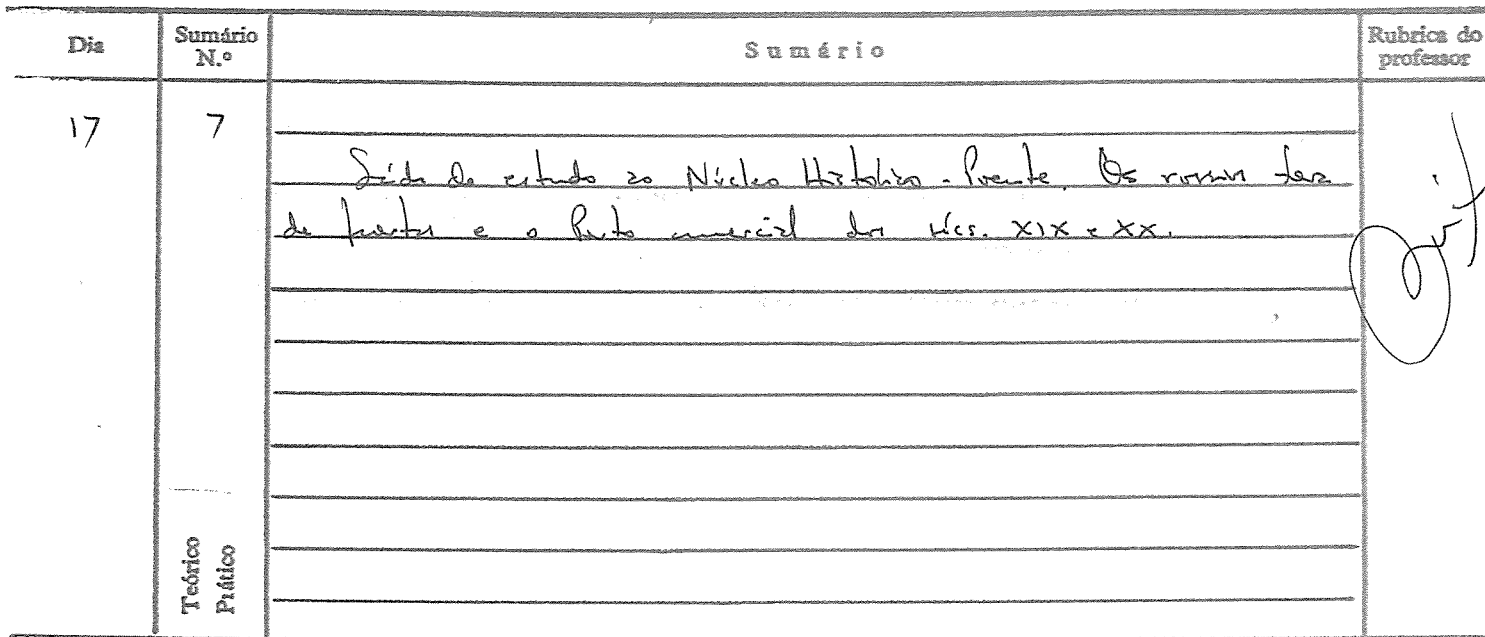 Dia
Sumário N.º
Sumário
Rubrica do professor
17
7
Saída de estudo ao Núcleo Histórico - Poente. Os
de e o Porto comercial dos sécs. XIX e XX.
Teórico
Prático